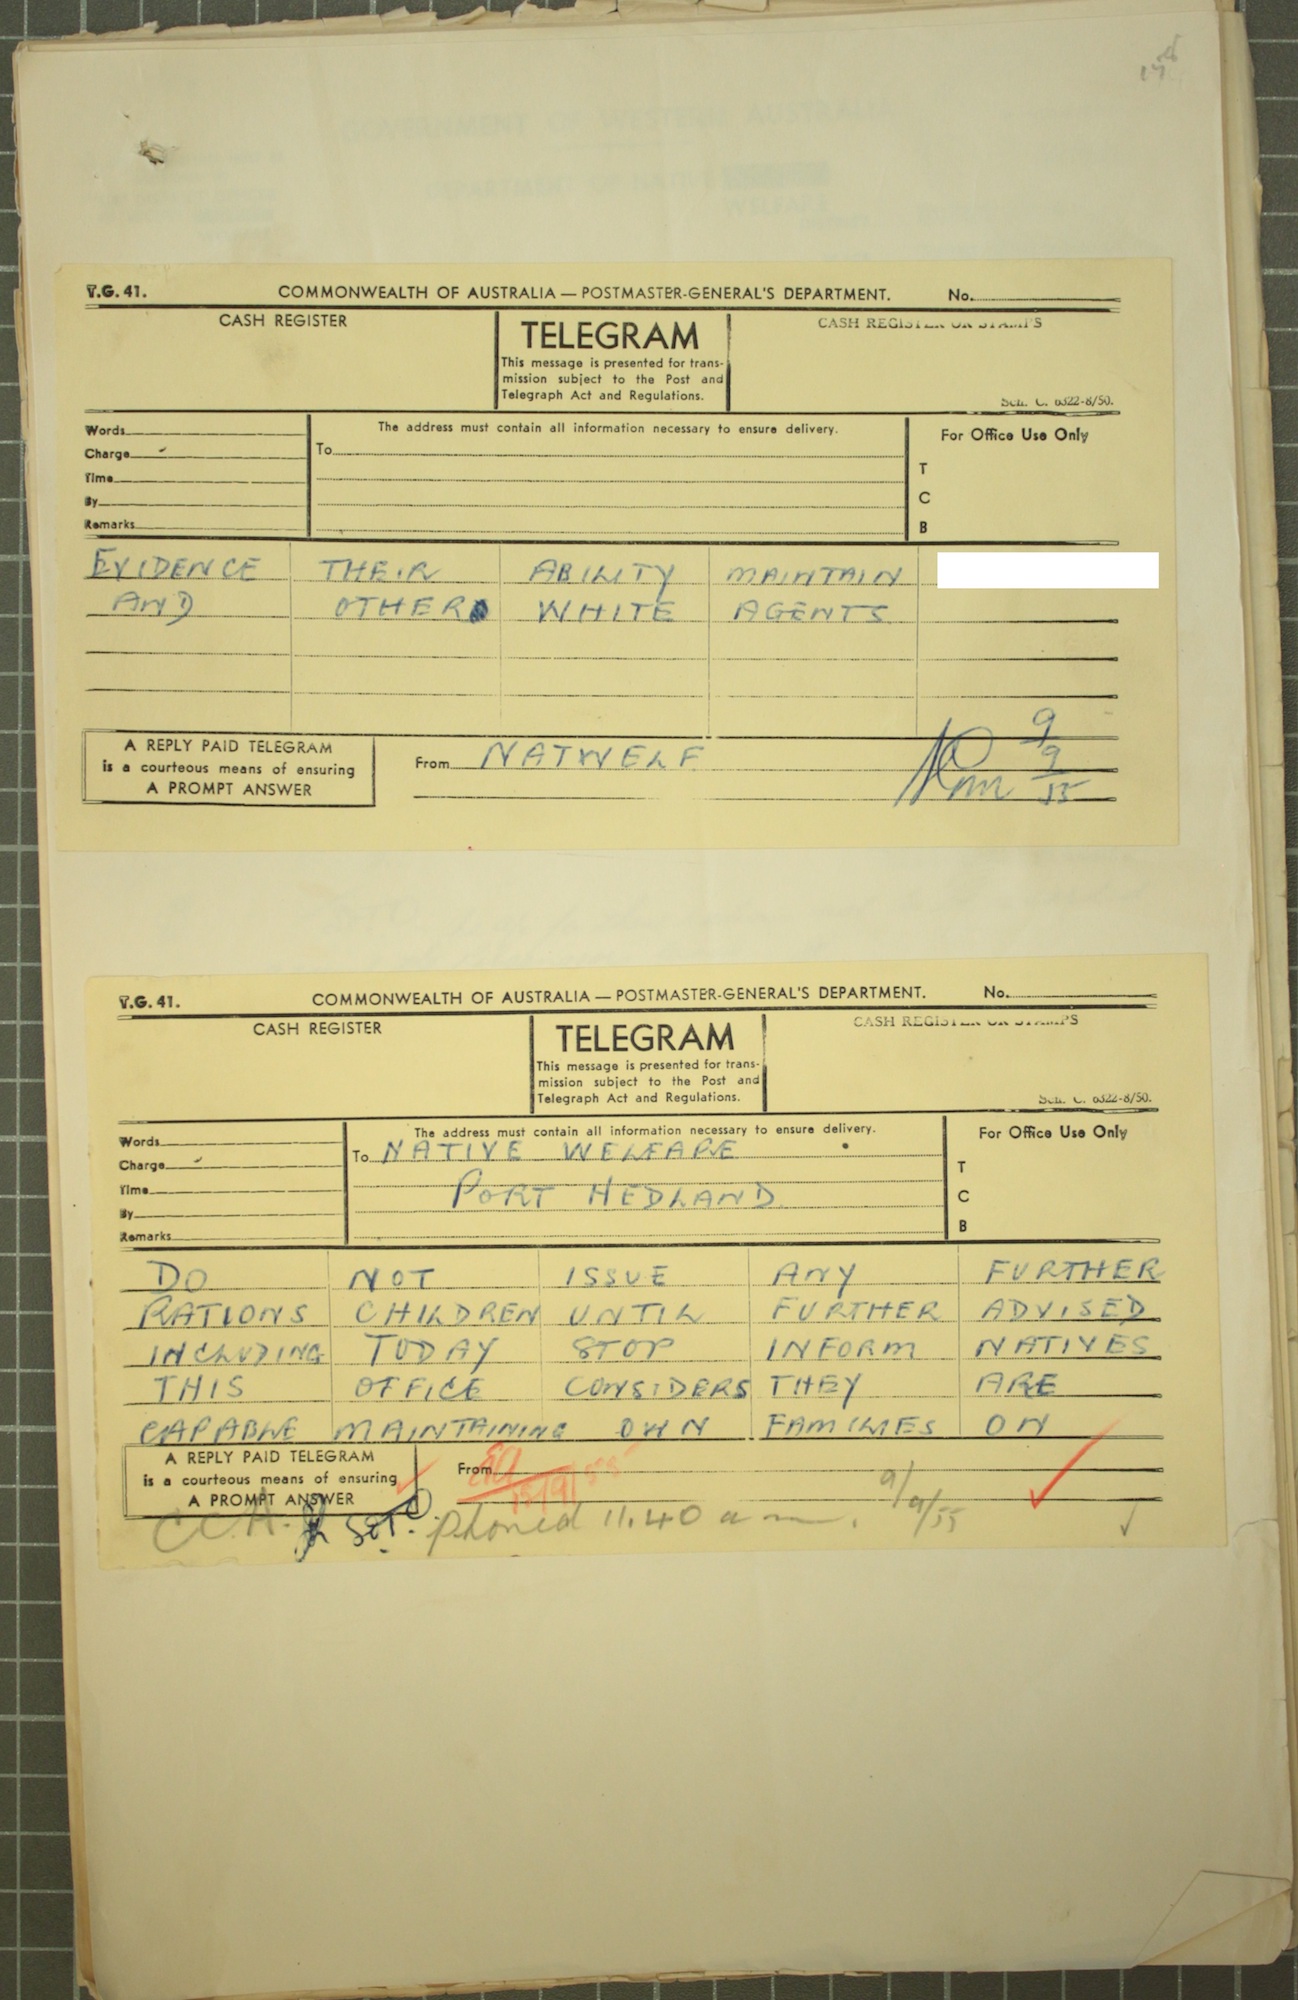 T.G. 41. COMMONWEALTH OF AUSTRALIA — POSTMASTER-GENERAL'S DEPARTMENT. No.
CASH REGISTER
TELEGRAM
This message is presented for trans-
mission subject to the Post and
Telegraph Act and Regulations.
CASH REGISTER OR STAMPS
Sch. C. 6322-8/50.
Words
Charge
Time
By
Remarks
The address must contain all information necessary to ensure delivery.
To
For Office Use Only
T
C
B
EVIDENCE THEIR ABILITY MAINTAIN
AND OTHER WHITE AGENTS
A REPLY PAID TELEGRAM
is a courteous means of ensuring
A PROMPT ANSWER
From NATWELF
9
9
55
T.G. 41. COMMONWEALTH OF AUSTRALIA — POSTMASTER-GENERAL'S DEPARTMENT. No.
CASH REGISTER
TELEGRAM
This message is presented for trans-
mission subject to the Post and
Telegraph Act and Regulations.
CASH REGISTER OR STAMPS
Sch. C. 6322-8/50.
Words
Charge
Time
By
Remarks
The address must contain all information necessary to ensure delivery.
To NATIVE WELFARE
PORT HEDLAND.
For Office Use Only
T
C
B
DO NOT ISSUE ANY FURTHER
RATIONS CHILDREN UNTIL FURTHER ADVISED
INCLUDING TODAY STOP INFORM NATIVES
THIS OFFICE CONSIDERS THEY ARE
CAPABLE MAINTAINING OWN FAMILIES ON
A REPLY PAID TELEGRAM
is a courteous means of ensuring
A PROMPT ANSWER
From
Phoned 11.40 a.m. 9/9/55